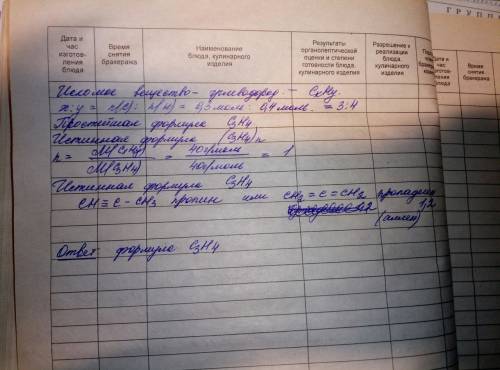 ГРУПП
Дата и час изготовления блюда
Время снятия бракеража
Наименование блюда, кулинарного изделия
Результаты органолептической оценки и степени готовности блюда, кулинарного изделия
Разрешение к реализации блюда, кулинарного изделия
Время снятия бракеража
Искомое вещество - углеводород - CxHy.
x:y = n(C) : n(H) = 0,3 моль : 0,4 моль = 3:4
Простейшая формула C3H4.
Истинная формула (C3H4)n
n = M(CxHy) / M(C3H4) = 40г/моль / 40г/моль = 1
Истинная формула C3H4
CH≡C-CH3 пропин или CH2=C=CH2 пропадиен 1,2
(аллен)
Ответ формула C3H4